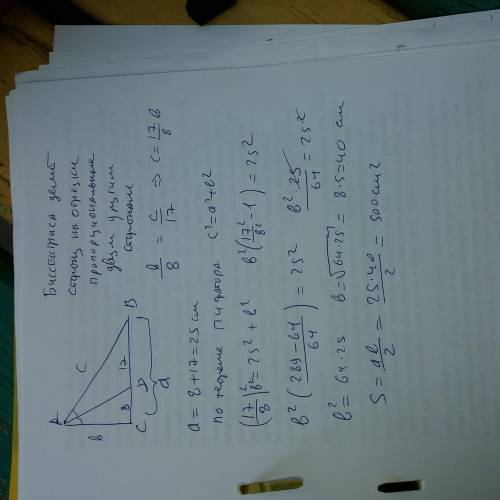 Биссектриса делит
сторону на отрезки
пропорциональные
двум другим
сторонам
b/8 = c/17 ⇒ c = 17/8 b
A
c
b
8
17
C
D
B
a
a = 8+17 = 25 см
по теореме Пифагора c² = a² + b²
(17/8)² b² = 25² + b² b² (17²/8² - 1) = 25²
b² (289-64/64) = 25² b² · 25/64 = 25²
b² = 64·25 b = √64·25 = 8·5 = 40 см
S = ab/2 = 25·40/2 = 500 см²